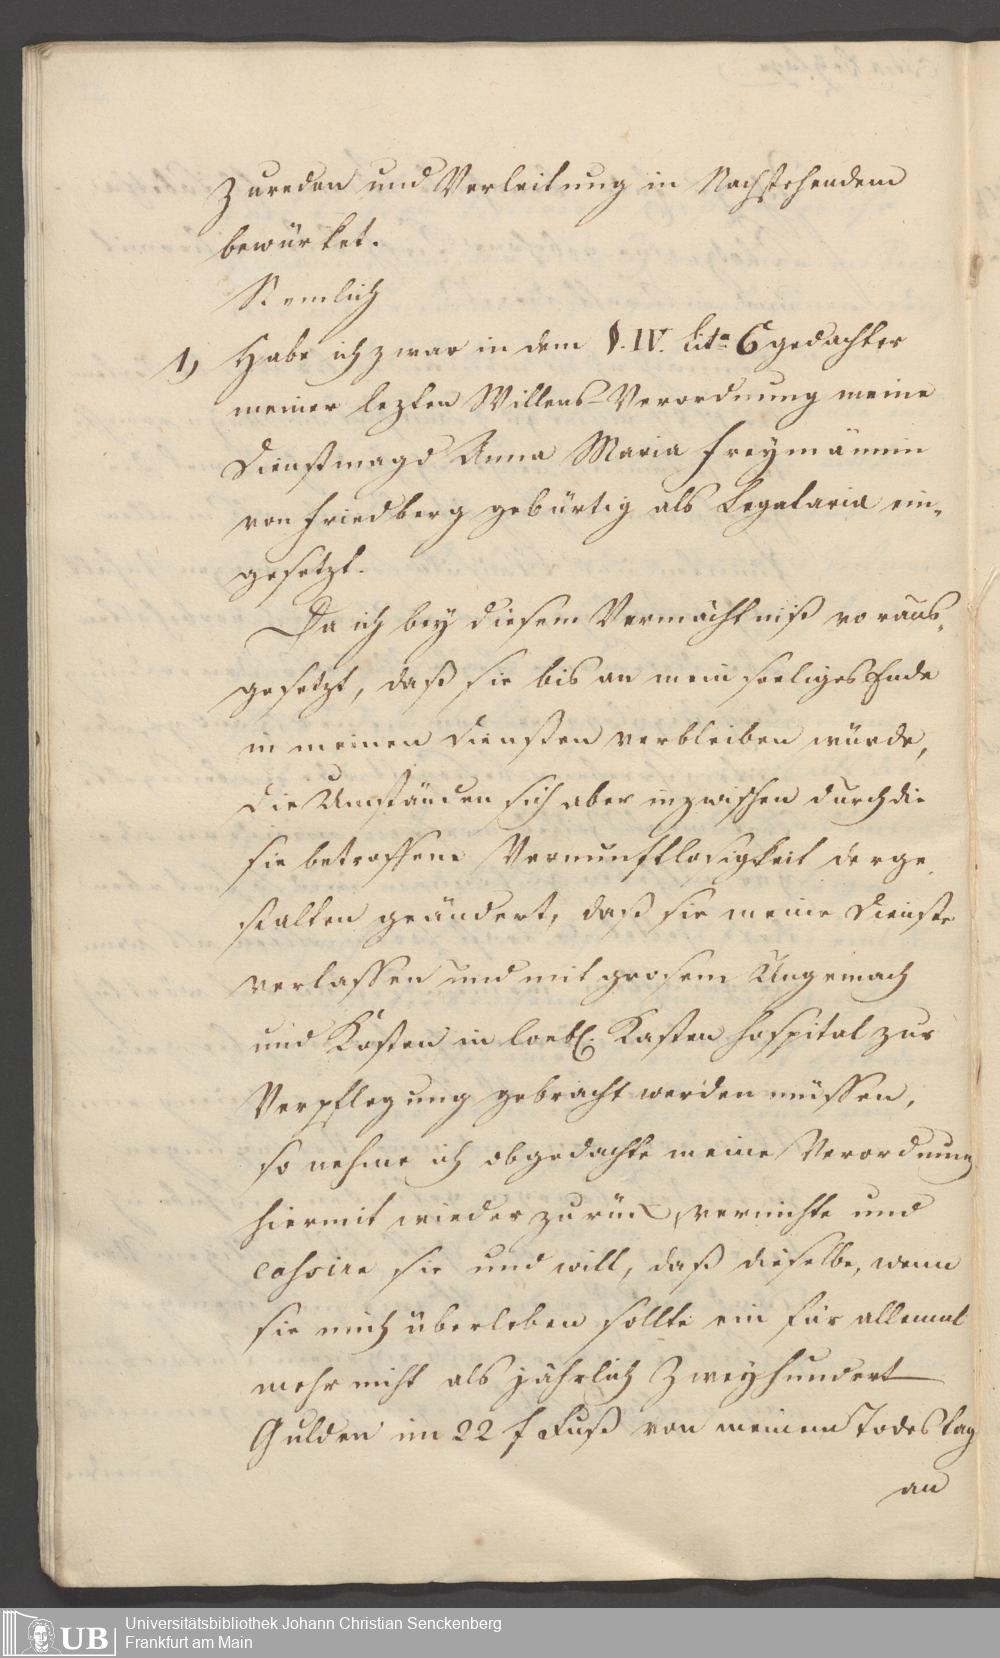 Zureden und Verleitung in Nachstehendem
bewürket.
Nemlich
1) Habe ich zwar in dem §. IV. Lit. 6 gedachter
meiner lezten Willens-Verordnung meine
Dienstmagd Anna Maria Freymännin
von Friedberg gebürtig als Legataria ein-
gesetzt.
Da ich bey diesem Vermächtniß voraus-
gesetzt, daß sie bis an mein seeliges Ende
in meinen Diensten verbleiben würde,
die Umständen sich aber inzwischen durch die
sie betroffene Vernunftlosigkeit derge-
stalten geändert, daß sie meine Dienste
verlassen und mit grosem Ungemach
und Kosten in loebl. Kasten Hospital zur
Verpflegung gebracht werden müssen,
so nehme ich obgedachte meine Verordnung
hiermit wieder zurück, vernichte und
cassire sie und will, daß dieselbe, wenn
sie mich überleben sollte ein für allemal
mehr nicht als jährlich Zweyhundert
Gulden im 22 f Fuß von meinem Todestag
an
Universitätsbibliothek Johann Christian Senckenberg
UB Frankfurt am Main